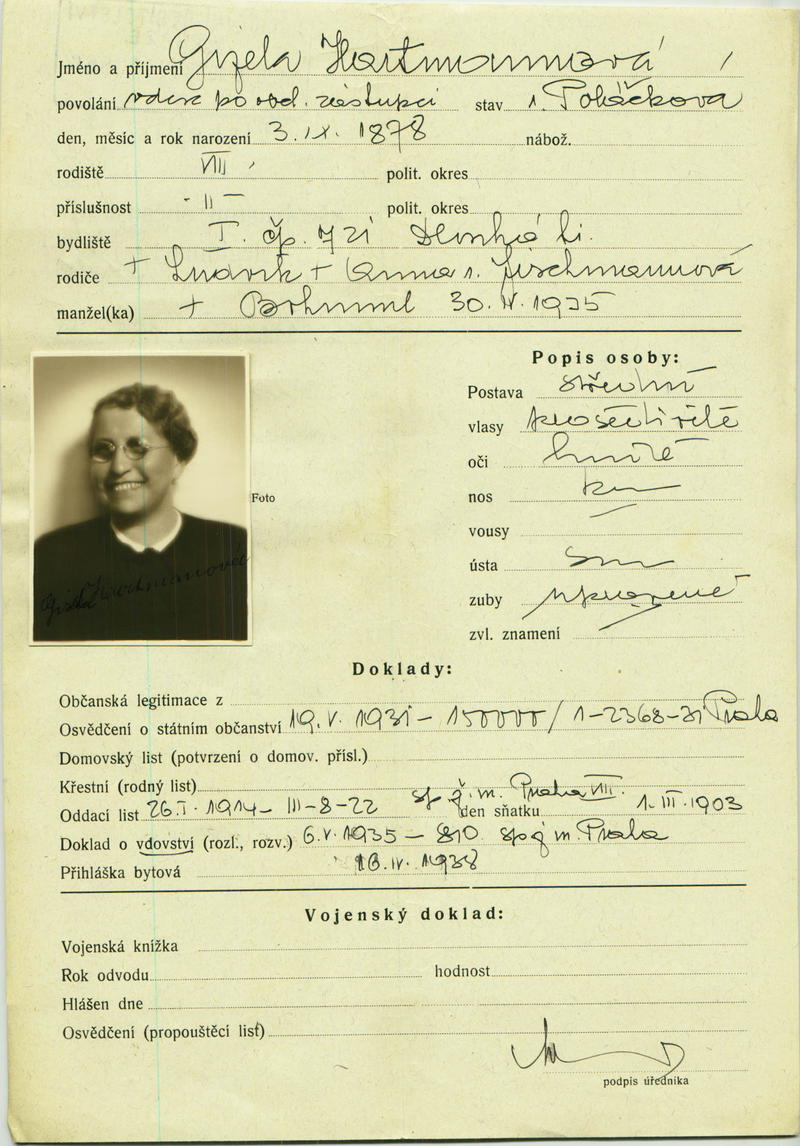 Jméno a příjmení Gizela Hartmannová
povolání vdova po obch. zástupci stav r. Poláčková
den, měsíc a rok narození 3. IX. 1878 nábož.
rodiště VIII polit. okres
příslušnost - II - polit. okres
bydliště I. čp. 731 Dlouhá tř.
rodiče + Ludvík + Anna r.
manžel(ka) + Bohumil 30. IV. 1935
Popis osoby:
Postava střední
vlasy prošedivělé
oči hnědé
nos
Foto
vousy
ústa
Gizela Hartmannová
zuby
zvl. znamení
Doklady:
Občanská legitimace z
Osvědčení o státním občanství 19. V. 1931 - / 1-2368-31 Praha
Domovský list (potvrzení o domov. přísl.)
Křestní (rodný list)
Oddací list 26. I. 1914 - III-8-22 Praha VIII. den sňatku 1. III. 1903
Doklad o vdovství (rozl., rozv.) 6. V. 1935 - 810 Praha
Přihláška bytová 16. IV. 1938
Vojenský doklad:
Vojenská knížka
Rok odvodu hodnost
Hlášen dne
Osvědčení (propouštěcí list)
podpis úředníka